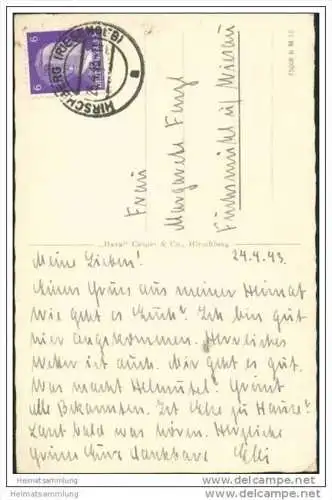 HIRSCHBERG (RIESENGEB)
6
Frau
Margarete
"Bara" & Co., Hirschberg
Meine Lieben! 24.4.43.
Einen Gruss aus meiner Heimat
wie geht es Euch? Ich bin gut
hier angekommen. Herrliches
Wetter ist auch. Mir geht es gut.
Was macht Helmutel? Grüsst
alle Bekannten. Ist zu Hause?
Lasst bald was hören. Herzliche
Grüsse Eure dankbare Elli
Heimatsammlung
Heimatsammlung